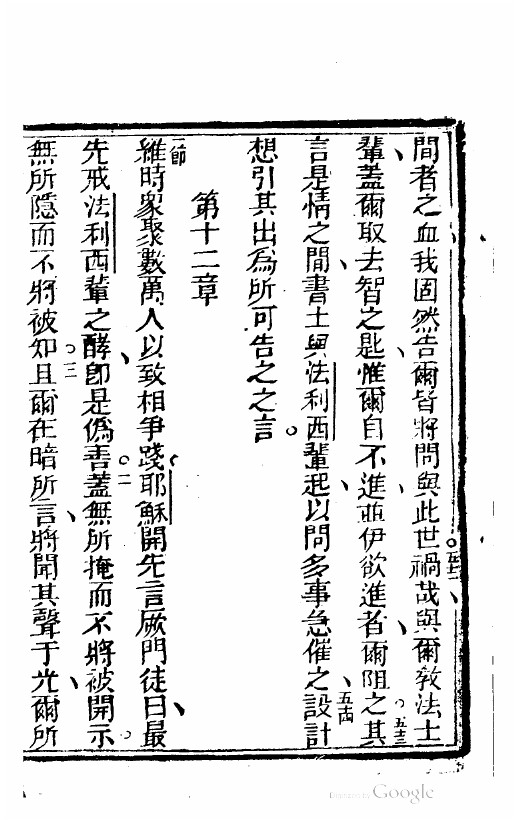 間者之血我固然告爾皆將問與此世。五二禍哉與爾教法士
輩蓋爾取去智之匙惟爾自不進並伊欲進者爾阻之。五三其
言是情之間書士與法利西輩起以問多事急催之五十四設計
想引其出為所可告之之言。
第十二章
一節維時眾聚數萬人以致相爭踐耶穌開先言厥門徒曰最
先戒法利西輩之酵卽是僞善。二蓋無所掩而不將被開示。
無所隱而不將被知。三且爾在暗所言將聞其聲于光爾所
Digitized by Google